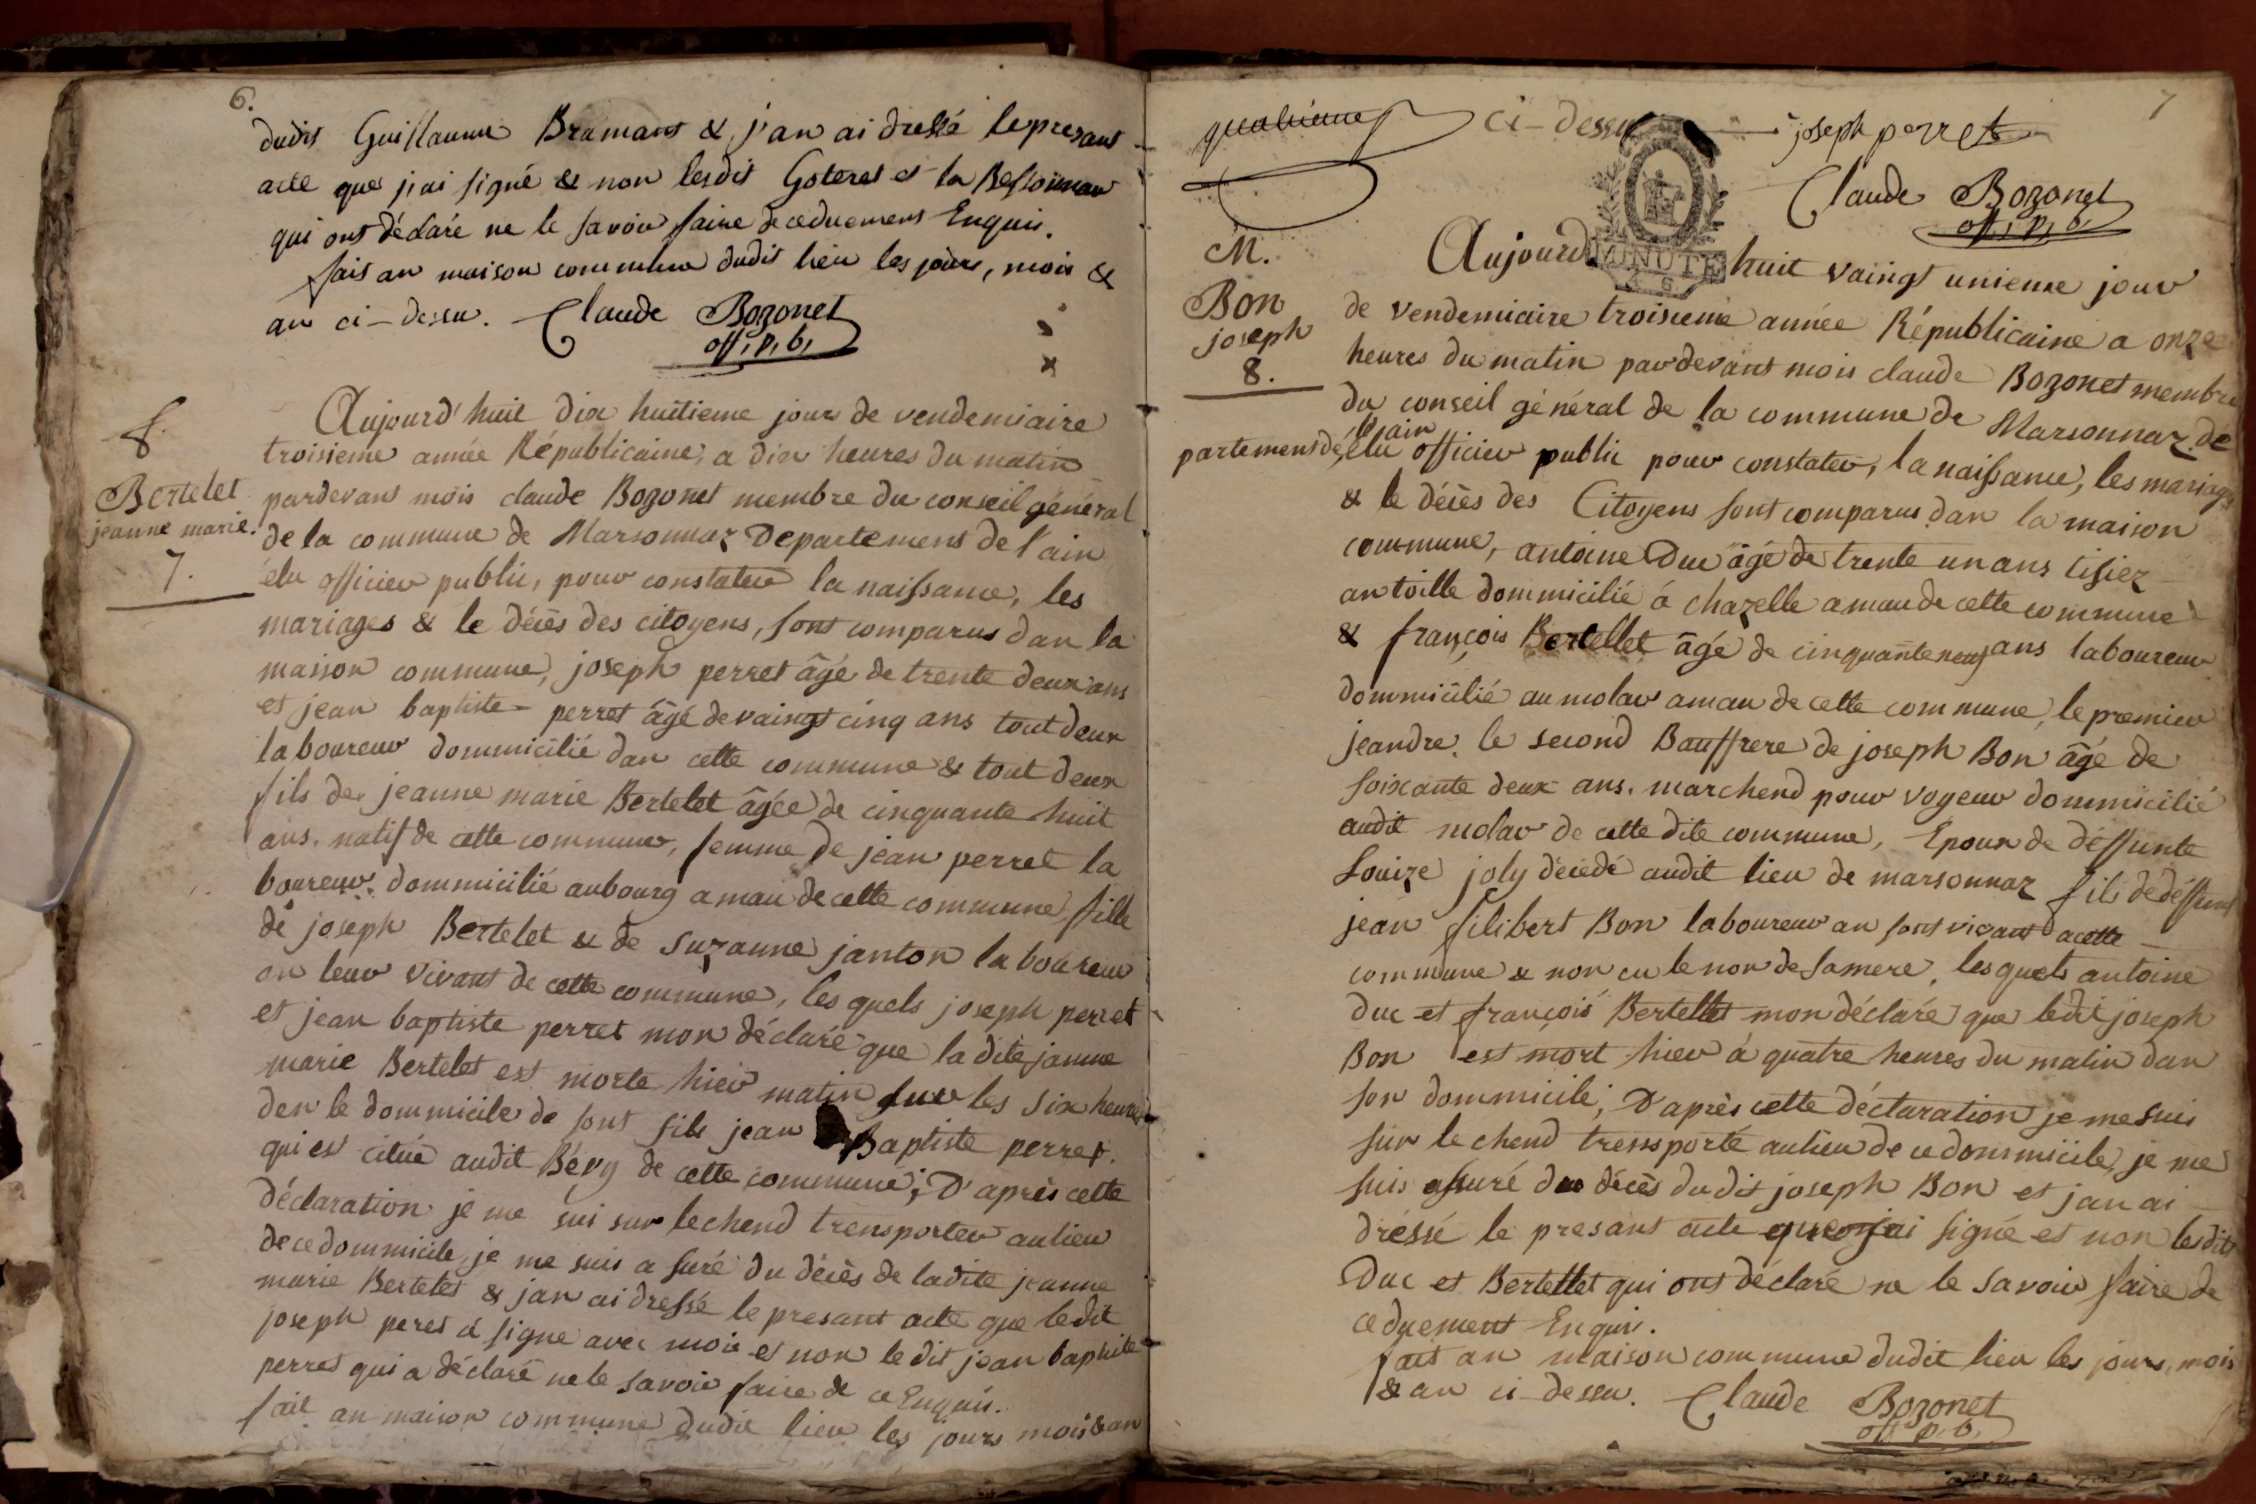 6.
dudit Guillaume Bramant & j'an ai dressé le presant
acte que j'ai signé & non lesdit Goteret et la
qui ont déclaré ne le savoir faire de ceduement Enquis.
fait an maison commune dudit lieu les jours, mois &
an ci-dessu. Claude Bozonet
off, p, b,
f.
8
Bertelet
jeanne marie.
7.
Aujourd'huit dix huitieme jour de vendemiaire
troisieme année Républicaine, a dix heures du matin
pardevant mois claude Bozonet membre du conseil général
de la commune de Marsonnaz Departement de l'ain
élu officier public, pour constater la naissance, les
mariages & le décès des citoyens, sont comparus dan la
maison commune, joseph perret âgé de trente deux ans
et jean baptiste perret âgé de vaingt cinq ans tout deux
laboureur dommicilié dan cette commune & tout deux
fils de jeanne marie Bertelet âgée de cinquante huit
ans. natif de cette commune, femme de jean perret la
boureur. dommicilié aubourg amau de cette commune, fille
de joseph Bertelet & de Suzanne janton laboureur
an leur vivant de cette commune, les quels joseph perret
et jean baptiste perret mon déclaré que la dite janne
marie Bertelet est morte hier matin sur les six heures
den le dommicile de sont fils jean Baptiste perret.
qui es citué audit Bévy de cette commune; D'après cette
déclaration je me sui sur lechend trensporter aulieu
de ce dommicile, je me suis a suré du décès de ladite jeanne
marie Bertelet & jan ai dressé le presant acte que ledit
joseph peret a signe avec mois et non le dit jean baptiste
perret qui a déclaré ne le savoir faire de ce Enquis.
fait an maison commune dudit lieu les jours mois & an
7
ci-dessu joseph perret
Claude Bozonet
off, p, b,
MINUTE
M.
Bon
joseph
8.
Aujourd huit vaingt unieme jour
de vendemiaire troisieme année Républicaine a onze
heures du matin pardevant mois claude Bozonet membre
du conseil général de la commune de Marsonnaz. dé
partement de l'ain, élu officier public pour constater, la naissance, les mariages
& le décès des Citoyens sont comparus dan la maison
commune, antoine Duc âgé de trente un ans tisiez
an toille dommicilié á chazelle amau de cette commune
& françois Bertellet âgé de cinquante neuf ans laboureur
dommicilié au molar amau de cette commune, le premier
jeandre. le second Bauffrere de joseph Bon âgé de
soixante deux ans. marchend pour voyeur dommicilié
audit molar de cette dite commune, Epoux de déffunte
Louize joly décédé audit lieu de marsonnaz fils de déffunt
jean filibert Bon laboureur an sont vivant acette
commune & non cu le non de samere, lesquels antoine
Duc et françois Bertellet mon déclaré que ledit joseph
Bon est mort hier á quatre heures du matin dan
son dommicile, D'après cette déclaration je me suis
sur le chend trensporté aulieu de ce dommicile, je me
suis assuré du décès dudit joseph Bon et jan ai
dréssé le presant acte que j'ai signé et non lesdit
Duc et Bertellet qui ont déclaré ne le savoir faire de
ceduement Enquis.
fait an maison commune dudit lieu les jours, mois
& an ci-dessu. Claude Bozonet
off, p, b,